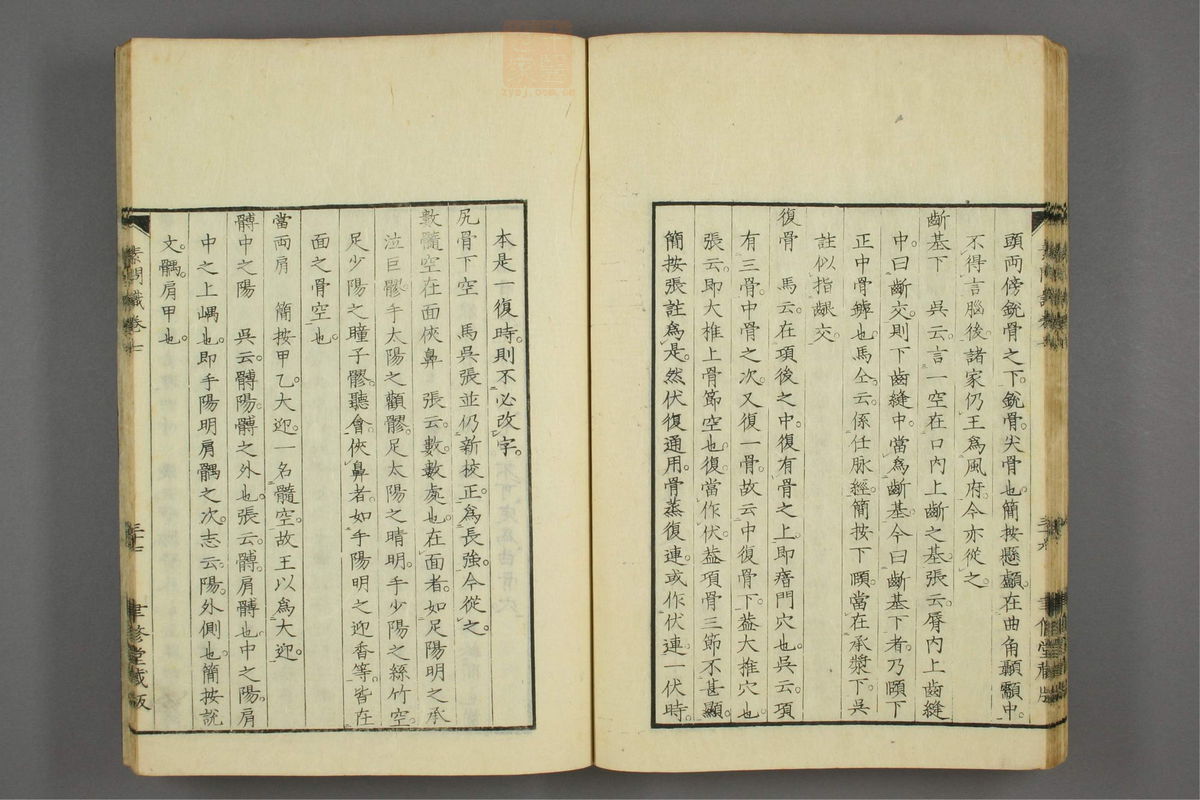 頭兩傍銳骨之下。銳骨尖骨也。簡按懸顱。在曲角顳顬中。
不得言腦後。諸家仍王爲風府。今亦從之。
齗基下　吳云。言一空在口內上齗之基。張云。脣內上齒縫
中。曰齗交。則下齒縫中。當爲齗基。今曰齗基下者。乃頤下
正中骨罅也。馬仝。云係任脉經。簡按下頤。當在承漿下。吳
註似指齦交。
復骨　馬云。在項後之中。復有骨之上。即瘖門穴也。吳云。項
有三骨。中骨之次。又復一骨。故云中復骨下。蓋大椎穴也。
張云。即大椎上骨節空也。復。當作伏。蓋項骨三節不甚顯。
簡按張註爲是。然伏復通用。骨蒸復連。或作伏連。一伏時。
本是一復時。則不必改字。
尻骨下空　馬吳張並仍新校正。爲長強。今從之。
數髓空在面俠鼻　張云。數。數處也。在面者。如足陽明之承
泣巨髎。手太陽之顴髎。足太陽之睛明。手少陽之絲竹空。
足少陽之瞳子髎聽會。俠鼻者。如手陽明之迎香等。皆在
面之骨空也。
當兩肩　簡按甲乙。大迎。一名髓空。故王以爲大迎。
髆中之陽　吳云。髆陽。髆之外也。張云。髆。肩髆也。中之陽。肩
中之上嵎也。即手陽明肩髃之次。志云。陽。外側也。簡按說
文。髃。肩甲也。
素問識卷七
三十七
聿修堂藏版